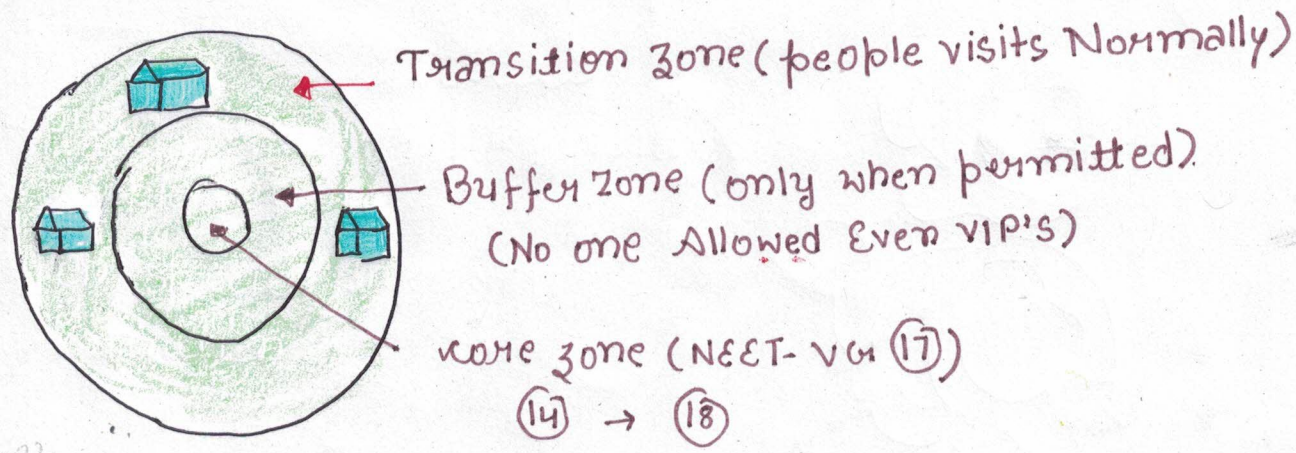 Transition Zone (people visits Normally)
Buffer Zone (only when permitted)
(No one Allowed Even VIP's)
Core Zone (NEET- VG 17)
14 → 18